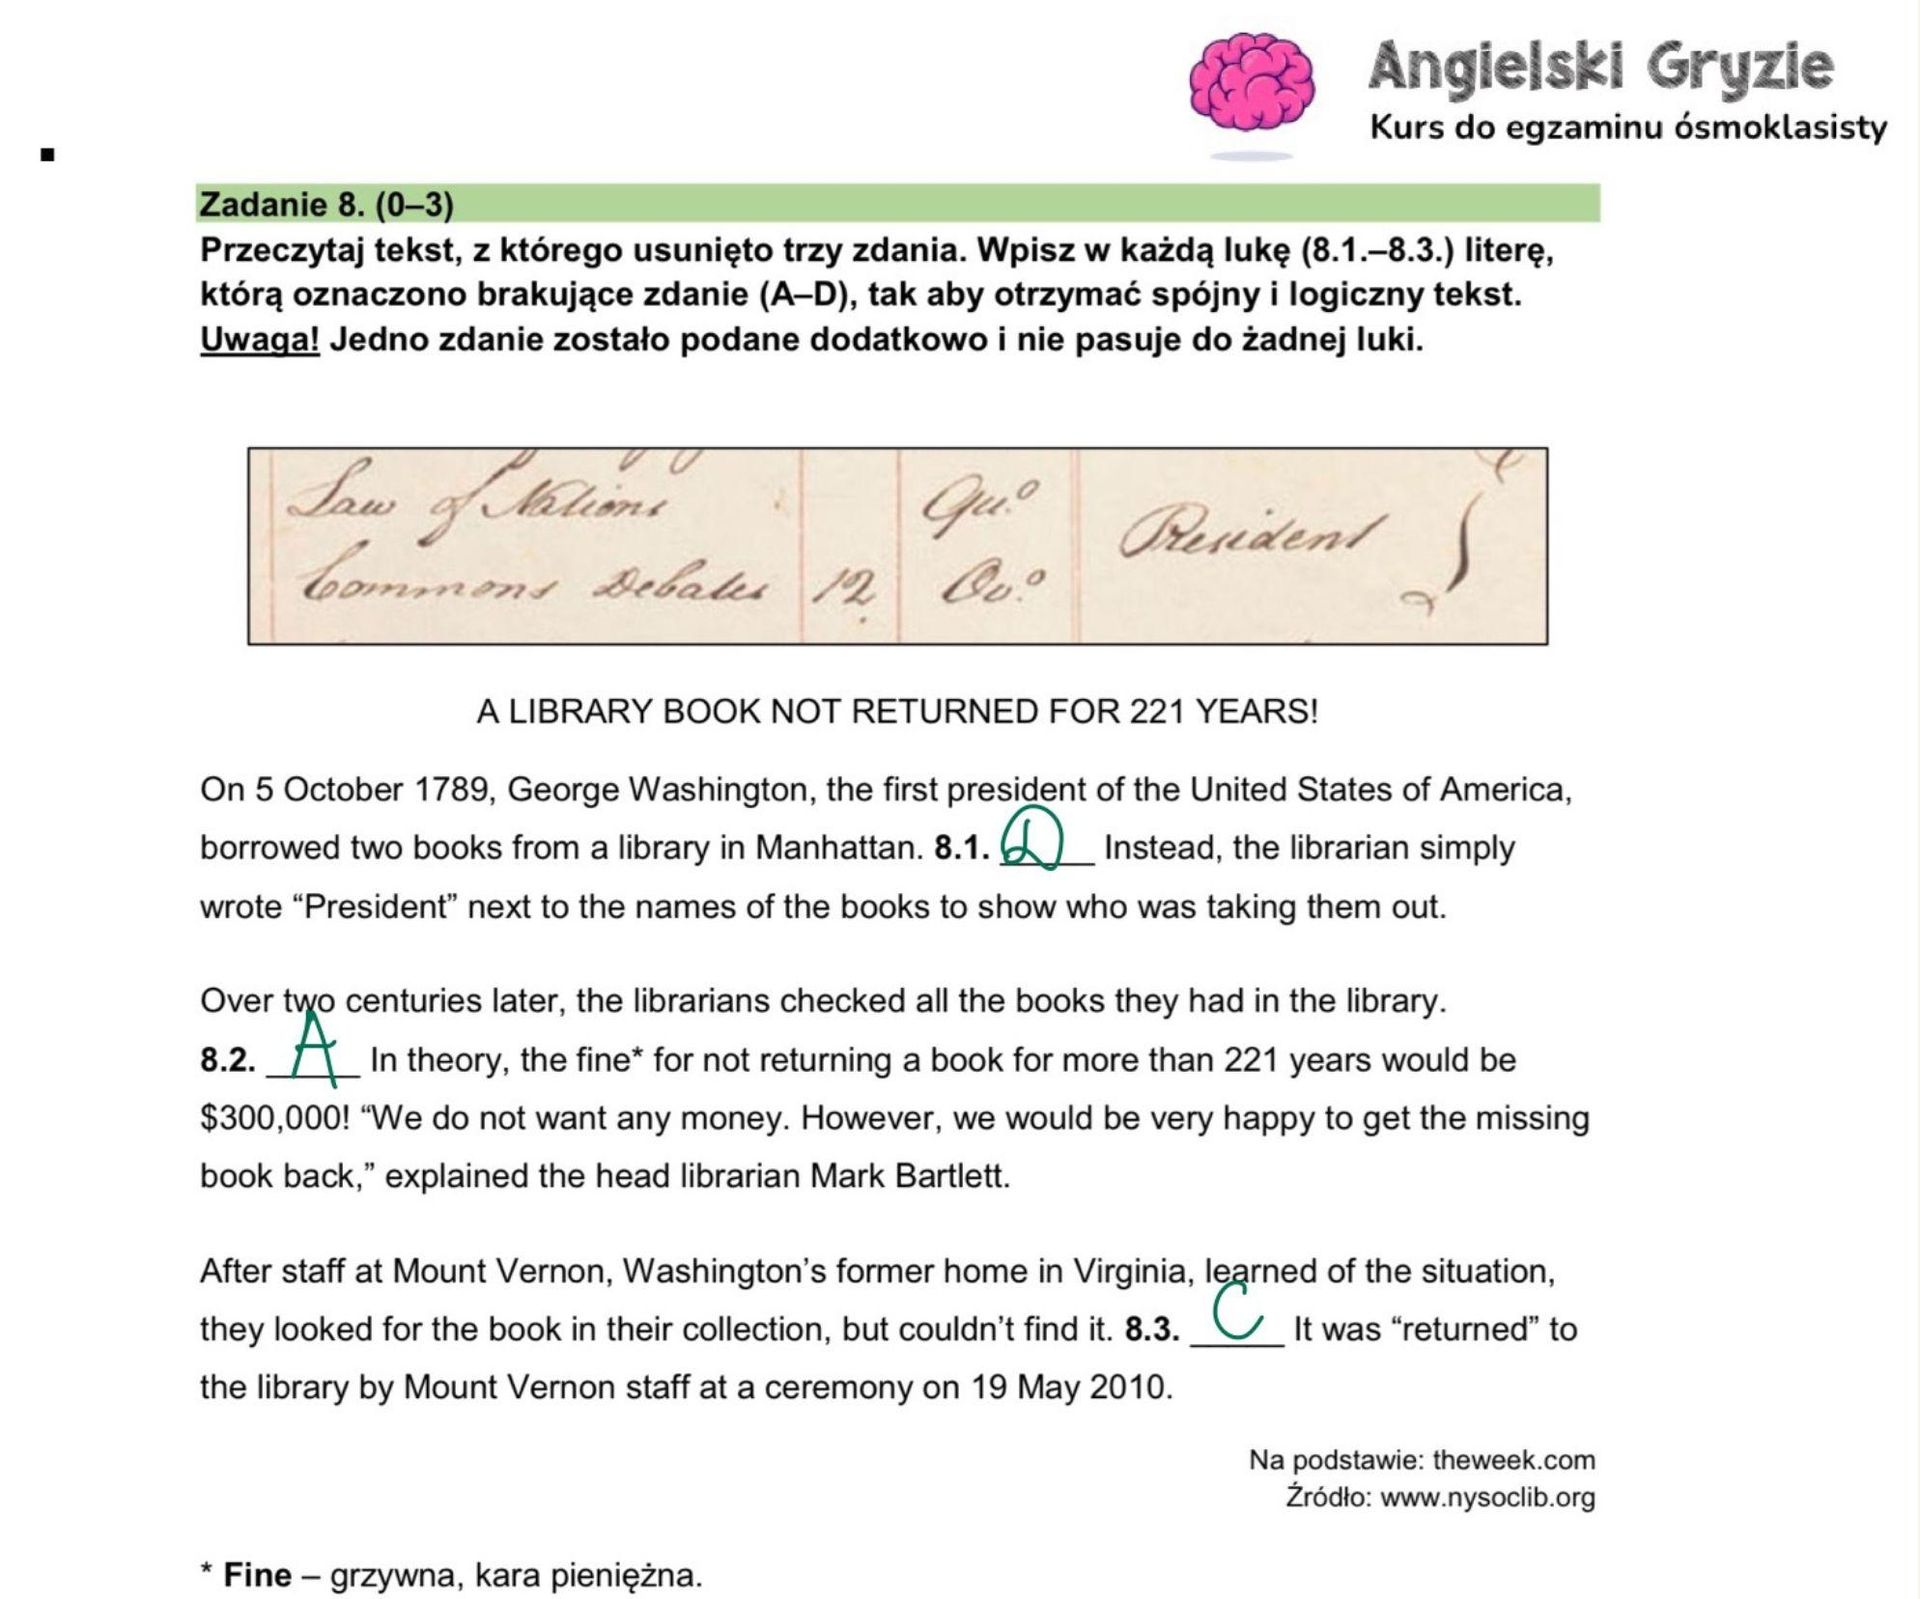 Angielski Gryzie
Kurs do egzaminu ósmoklasisty
Zadanie 8. (0–3)
Przeczytaj tekst, z którego usunięto trzy zdania. Wpisz w każdą lukę (8.1.–8.3.) literę,
którą oznaczono brakujące zdanie (A–D), tak aby otrzymać spójny i logiczny tekst.
Uwaga! Jedno zdanie zostało podane dodatkowo i nie pasuje do żadnej luki.
Law of Nations Qu.º
President
Commons Debates 12. Ov.º
A LIBRARY BOOK NOT RETURNED FOR 221 YEARS!
On 5 October 1789, George Washington, the first president of the United States of America,
borrowed two books from a library in Manhattan. 8.1. D Instead, the librarian simply
wrote “President” next to the names of the books to show who was taking them out.
Over two centuries later, the librarians checked all the books they had in the library.
8.2. A In theory, the fine* for not returning a book for more than 221 years would be
$300,000! “We do not want any money. However, we would be very happy to get the missing
book back,” explained the head librarian Mark Bartlett.
After staff at Mount Vernon, Washington’s former home in Virginia, learned of the situation,
they looked for the book in their collection, but couldn’t find it. 8.3. C It was “returned” to
the library by Mount Vernon staff at a ceremony on 19 May 2010.
Na podstawie: theweek.com
Źródło: www.nysoclib.org
* Fine – grzywna, kara pieniężna.